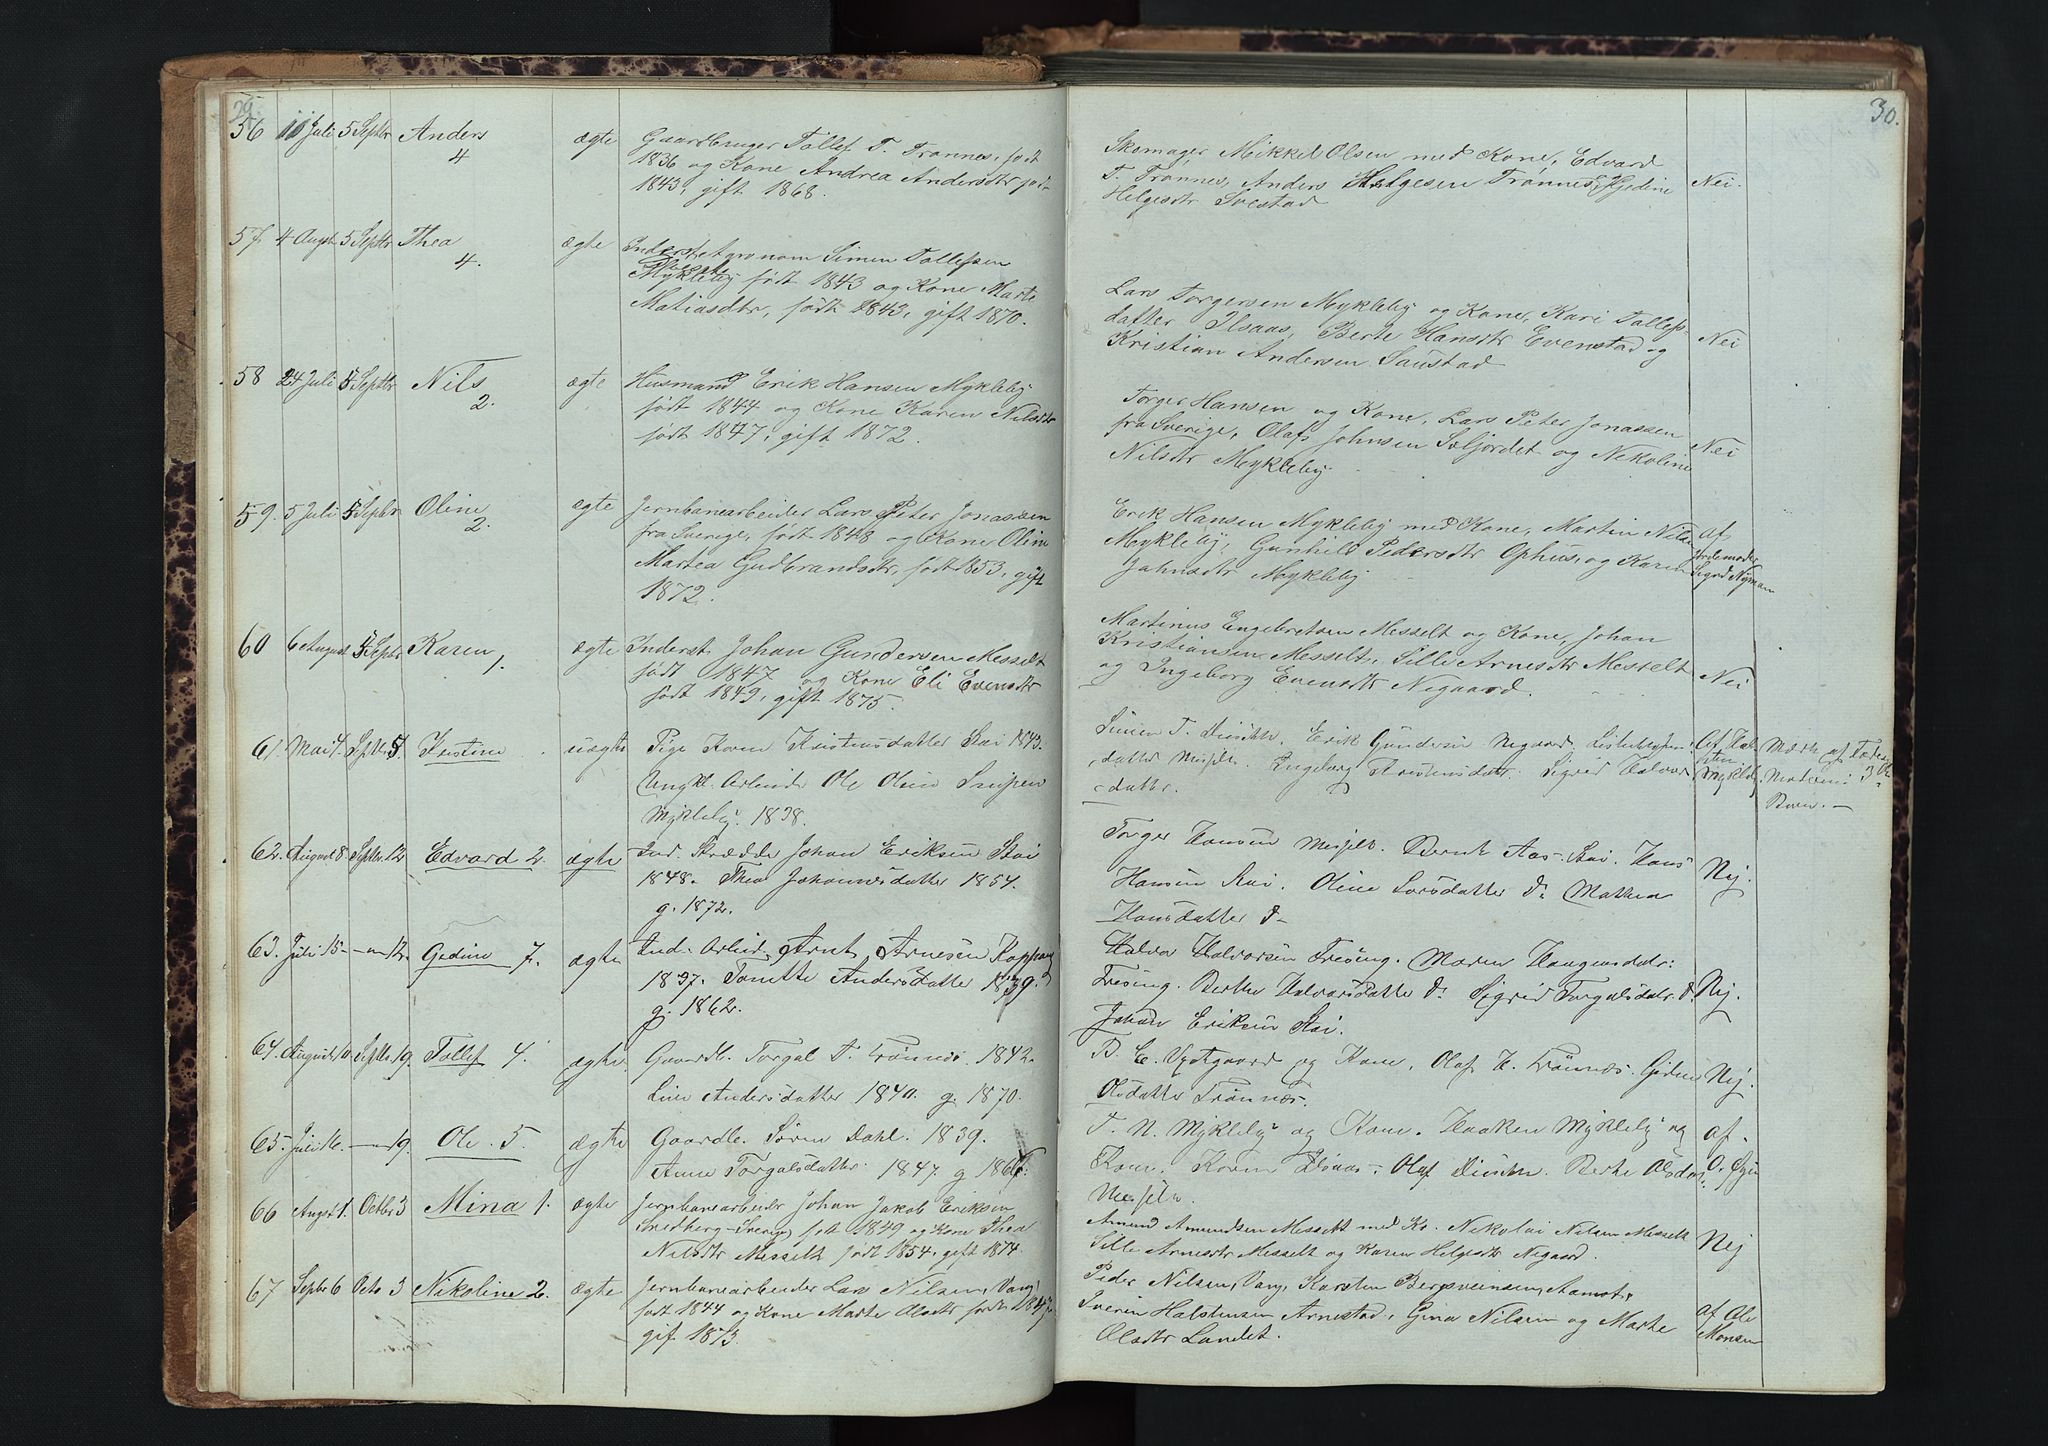 29.
30.
56 11 Juli 5 Septbr Anders ægte Gaardbruger Tollef T. Trønnes, født
4 1836 og Kone Andrea Andersdtr født
1843, gift 1868.
Skomager Mikkel Olsen med Kone, Edvard
T. Trønnes, Anders Helgesen Trønnes, Gjedine Nei.
Helgesdtr Svestad
57 4 Augst 5 Septbr Thea ægte Inderst Agronom Simen Tollefsen
4. Mykleby født 1843 og Kone Marte
Matiasdtr, født 1843, gift 1870.
Lars Torgersen Mykleby og Kone, Kari Tollefs-
datter Ilsaas, Berte Hansdtr Evenstad og Nei
Kristian Andersen Saustad
58 24 Juli 5 Septbr Nils ægte Husmand Erik Hansen Mykleby
2. født 1844 og Kone Karen Nilsdtr
født 1847, gift 1872.
Torger Hansen og Kone, Lars Peter Jonassen
fra Sverige, Olaf Johnsen Soljordet og Nekoline Nei
Nilsdtr Mykleby
59. 5 Juli 5 Septbr Oline ægte Jernbanearbeider Lars Peter Jonassen
2. fra Sverige, født 1848 og Kone Oline
Martea Gudbrandsdtr, født 1853, gift
1872.
Erik Hansen Mykleby med Kone, Martin Nilsen af
Mykleby, Gunhild Pedersdtr Ophus, og Karen Jordemoder
Johnsdtr Mykleby Sigrid Nyman
60 6 August 5 Septbr Karen 1. ægte Inderst Johan Gundersen Messelt
født 1847 og Kone Eli Evensdtr
født 1849, gift 1875.
Martinus Engebretsen Messelt og Kone, Johan
Kristiansen Messelt, Sille Arnesdtr Messelt Nei
og Ingeborg Evensdtr Negaard.
61. Mai 4. Septbr 5. Justine uægte Pige Karen Kristensdatter Stai 1843.
Ungkl. Arbeider Ole Olsen
Mykleby. 1838.
Simen T. Erik Gundersen Negaard.
datter Ingeborg Kristensdatter. Sigrid Halvors-
datter.
Mykleby
Moderens 3
Barn.
62. August 8. Septbr. 12. Edvard 2. ægte Ind. Skrædder Johan Eriksen Stai
1848. Thea Johannesdatter 1854.
g. 1872.
Torger Hansen Messelt. Bernt Aas Stai. Hans
Hansen Stai. Oline Larsdatter do Mathea Nej.
Hansdatter do
63. Juli 15. — 12. Gedine 7. ægte Ind. Arbeid. Arnt Arnesen Koppang
1837. Tonette Andersdatter 1839.
g. 1862.
Halvor Halvorsen Tresing. Maren Haagensdatr:
Tresing. Berthe Halvorsdatter do Sigrid Torgalsdatr. do Nej.
Johan Eriksen Stai.
64. August 10. Septbr. 19. Tollef 4. ægte. Gaardb. Torgal T. Trønnes. 1842.
Line Andersdatter 1840. g. 1870.
B. E. og Kone, Olaf H. Trønnes. Gedine Nej.
Olsdatter Trønnes.
65. Juli 16. — 19. Ole. 5. ægte Gaardb. Søren Dahl. 1839.
Anne Torgalsdatter. 1847. g 1866.
T. N. Mykleby og Kone. Haaken Mykleby og af
Kone. Karen Berthe Olsdatr.
Messelt.
66 Augst 1. Octbr 3 Mina 1. ægte Jernbanearbeider Johan Jakob Eriksen
Snedberg-Sverige, født 1849 og Kone Thea
Nilsdtr Messelt født 1854, gift 1874.
Amund Amundsen Messelt med Ko. Nikolai Nilsen Messelt
Sille Arnesdtr Messelt og Karen Helgesdtr Negaard. Nej
67 Septbr 6 Octo 3 Nikoline 2. ægte Jernbanearbeider Lars Nilsen, Vang,
født 1844 og Kone Marte Olsdtr født 1847,
gif 1873.
Peder Nilsen, Vang, Karsten Bergsveinsen, Aamot,
Iverin Halstensen Arnestad, Gina Nilsen og Marte af Ole
Olsdtr Landet. Monsen